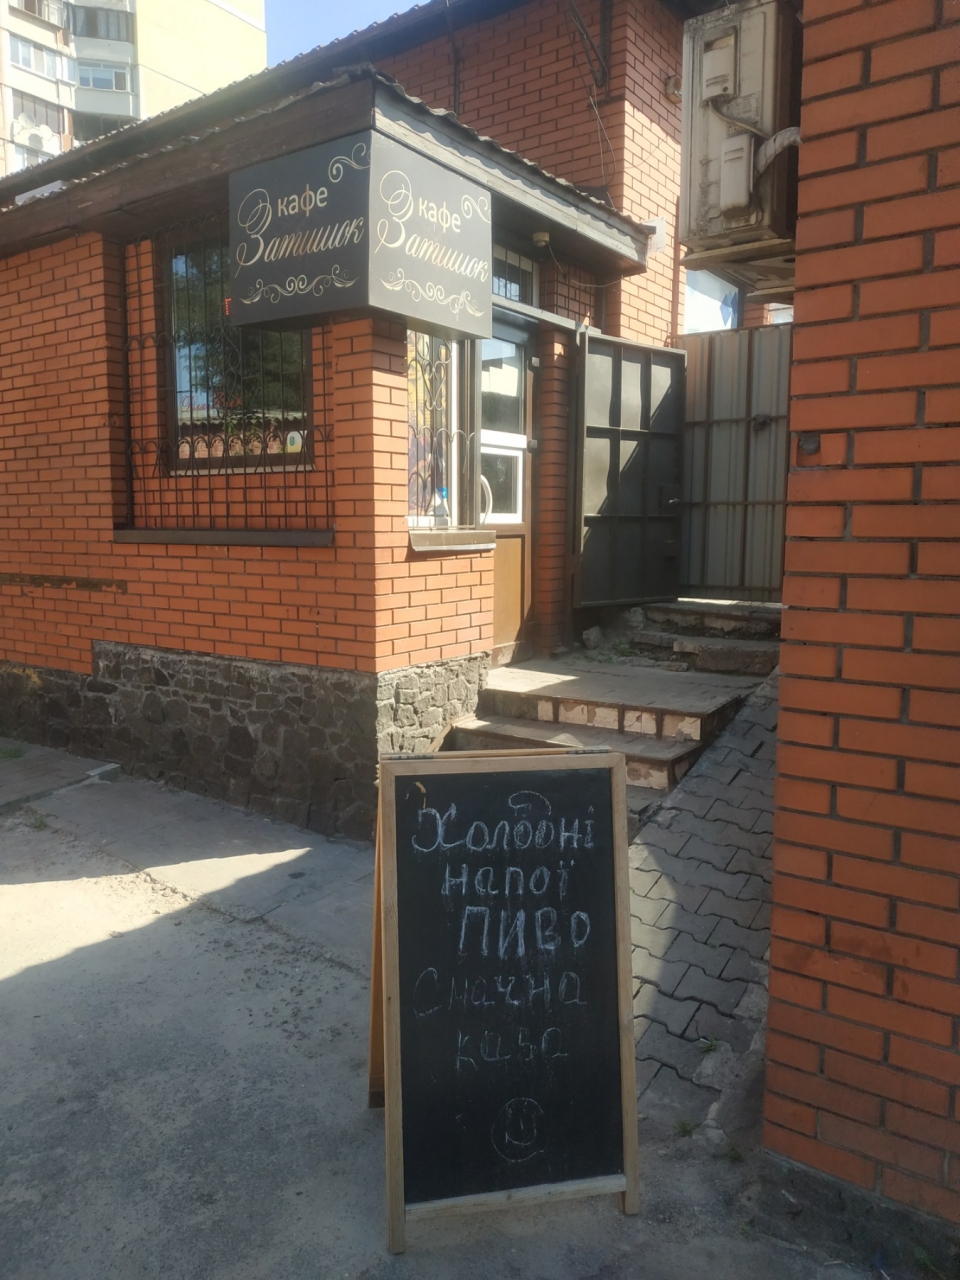 кафе
Затишок
кафе
Затишок
Холодні
напої
ПИВО
Смачна
кава